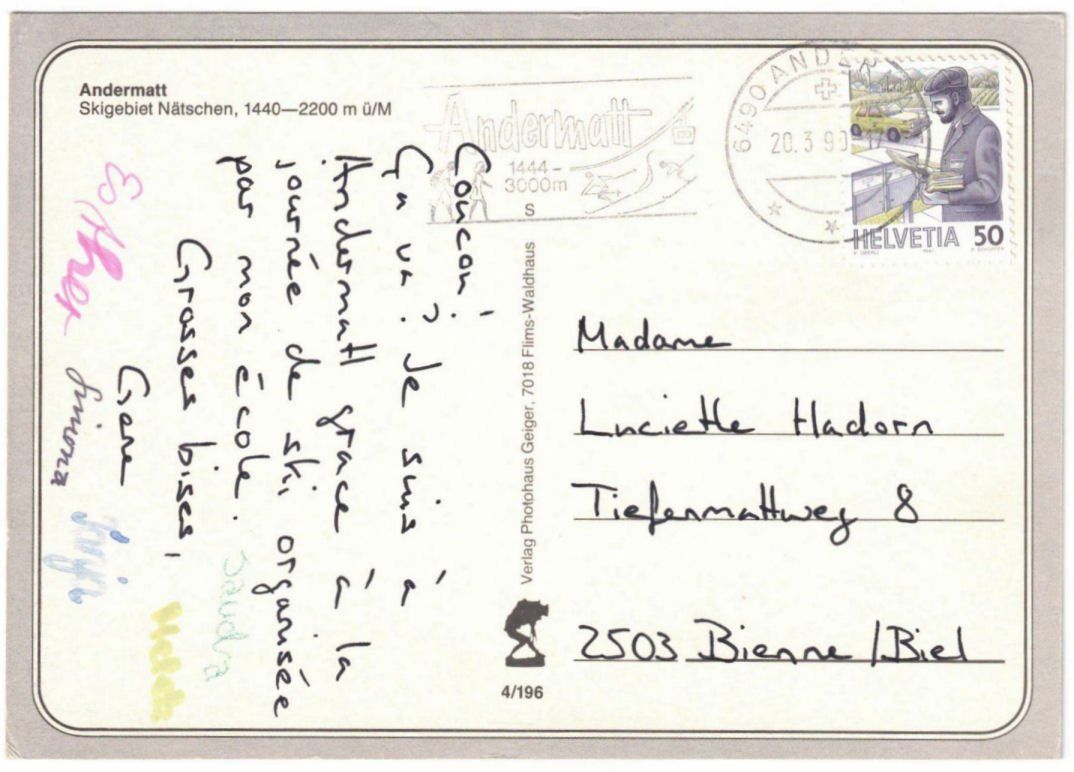 Andermatt
Skigebiet Nätschen, 1440—2200 m ü/M
Andermatt
1444 -
3000m
S
6490 ANDER
20.3.90
HELVETIA 50
Coucou!
Ça va? Je suis à
Andermatt grace à la
journée de ski, organisée
par mon école.
Grosses bises,
Sandra
Simona
Verlag Photohaus Geiger, 7018 Flims-Waldhaus
4/196
Madame
Luciette Hadorn
Tiefenmattweg 8
2503 Bienne/Biel